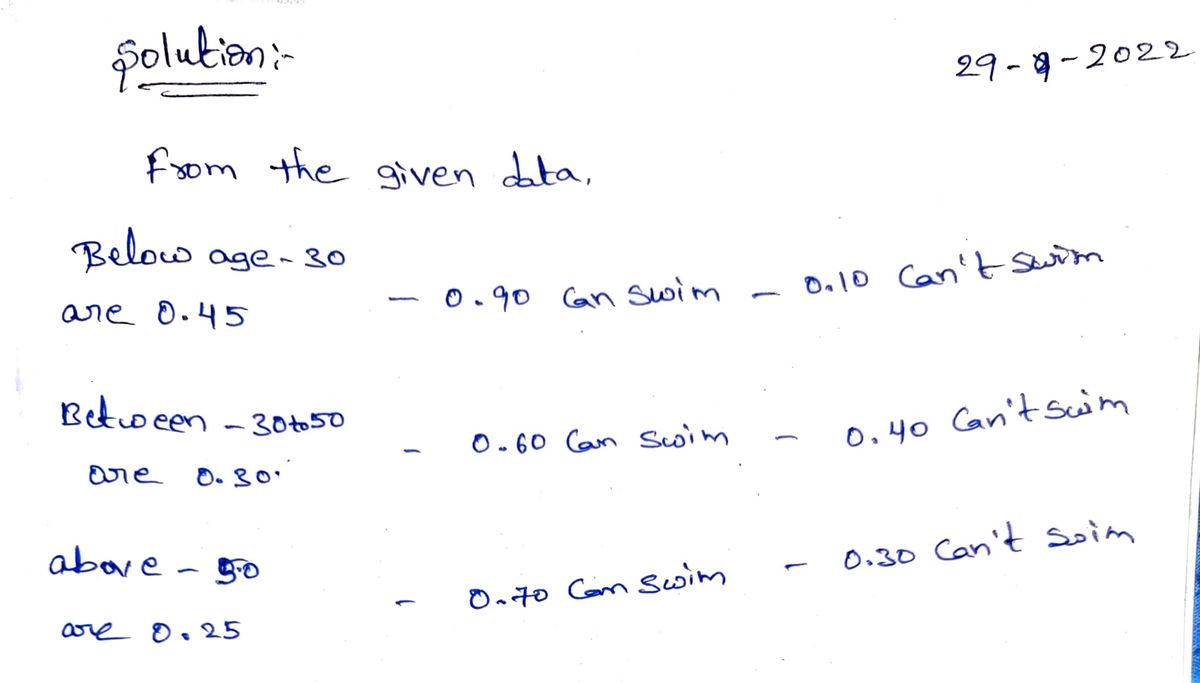 Solution:-
29-9-2022
From the given data,
Below age - 30
are 0.45
- 0.90 Can swim - 0.10 Can't swim
Between - 30 to 50
are 0.30.
- 0.60 Can swim - 0.40 Can't swim
above - 50
are 0.25
- 0.70 Can swim - 0.30 Can't swim